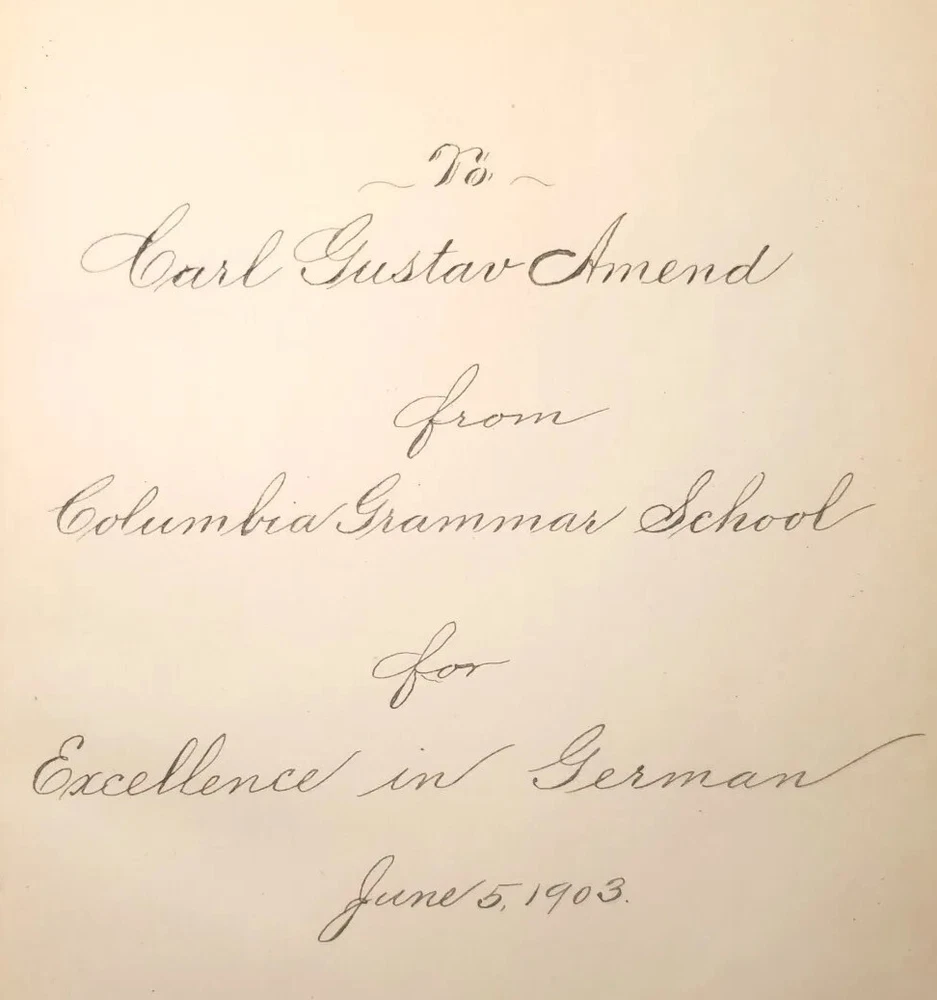 ~ To ~
Carl Gustav Amend
from
Columbia Grammar School
for
Excellence in German
June 5, 1903.